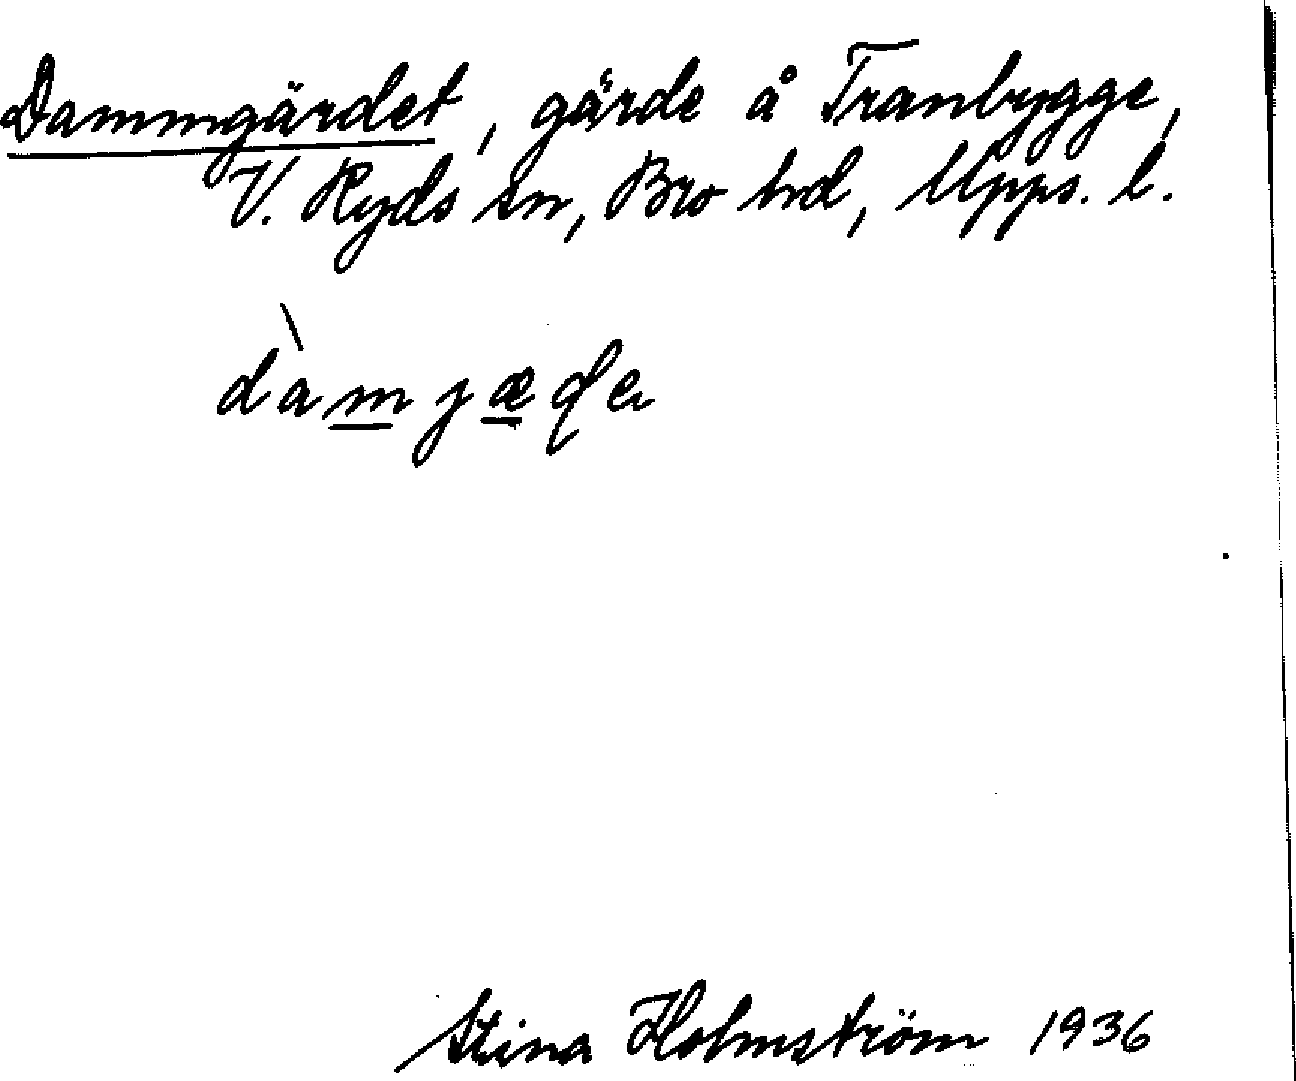 Dammgärdet, gärde å Tranbygge,
V. Ryds sn, Bro hd, Upps. l.
dàmjæɖe
Stina Holmström 1936